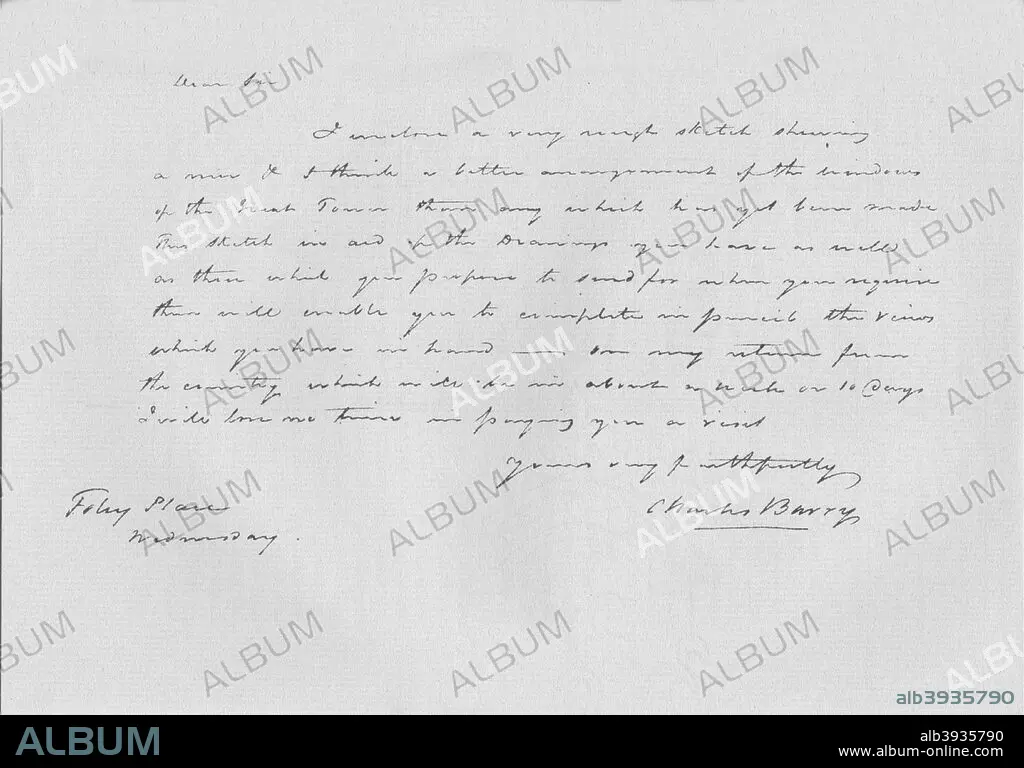 Dear Sir
I inclose a very rough sketch shewing
a new & I think a better arrangement of the windows
of the Great Tower than any which has yet been made
This sketch in aid of the Drawings you have as well
as those which you propose to send for when you require
them will enable you to complete in pencil the views
which you have in hand — On my return from
the country which will be in about a week or 10 Days
I will lose no time in paying you a visit
Yours very faithfully
Charles Barry
Foley Place
Wednesday.
alb3935790
ALBUM
alb3935790
www.album-online.com